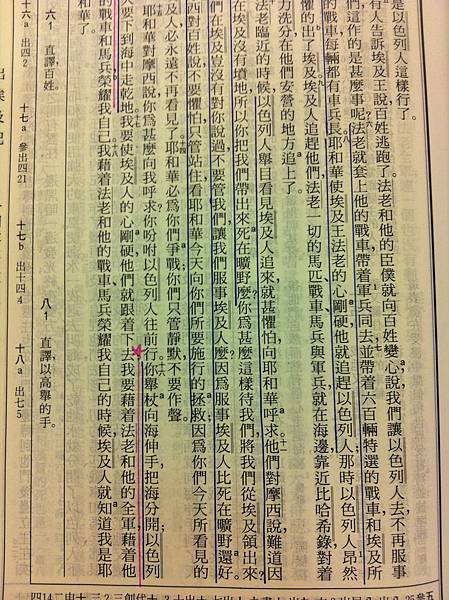 是以色列人這樣行了。
有人告訴埃及王說百姓逃跑了。法老和他的臣僕就向百姓變ª心說,我們讓以色列人去不再服事
們,這作的是甚麼事呢?六法老就套上他的戰車,帶着軍兵同去;七並帶着六百輛特選的戰車和埃及所
戰車,每輛都有車兵長。八耶和華使埃及王法老的心ª剛硬,他就追趕以色列人;那時以色列人昂然
懼的出了埃及。埃及人ª追趕他們,法老一切的馬匹、戰車、馬兵與軍兵,就在海邊靠近比哈希錄,對着
力洗分,在他們安營的地方追上了。
法老臨近的時候,以色列人舉目看見埃及人追來,就甚懼怕,向耶和華ª呼求。十一他們對摩西說,難道因
在埃及沒有墳地,所以你把我們帶出來死在曠野麼?你為甚麼這樣待我們,將我們從埃及領出來?
們在埃及豈沒有對你說過,不要管我們,讓我們服事埃及人麼?因為服事埃及人比死在曠野還好。
西對百姓說,不要懼怕,只管站住,看耶和華今天向你們所要施行的拯救,因為你們今天所看見的
及人,必永遠不再看見了。十四耶和華必為你們ª爭戰;你們只管靜默,不要作聲。
耶和華對摩西說,你為甚麼向我呼求?你吩咐以色列人往前行。十六你舉杖向海伸手,把海分開;以色列
要下到海中走乾地。十七我要使埃及人的心ª剛硬,他們就跟着下去;我要藉着法老和他的全軍,藉着他
的戰車和馬兵,榮耀我自己。十八我藉着法老和他的戰車、馬兵,榮耀我自己的時候,埃及人就ª知道我是耶
和華了。
六1 直譯,百姓。
八1 直譯,以高舉的手。
十六a 出四2
十七a 參出四21
十七b 出十四4
十八a 出七5